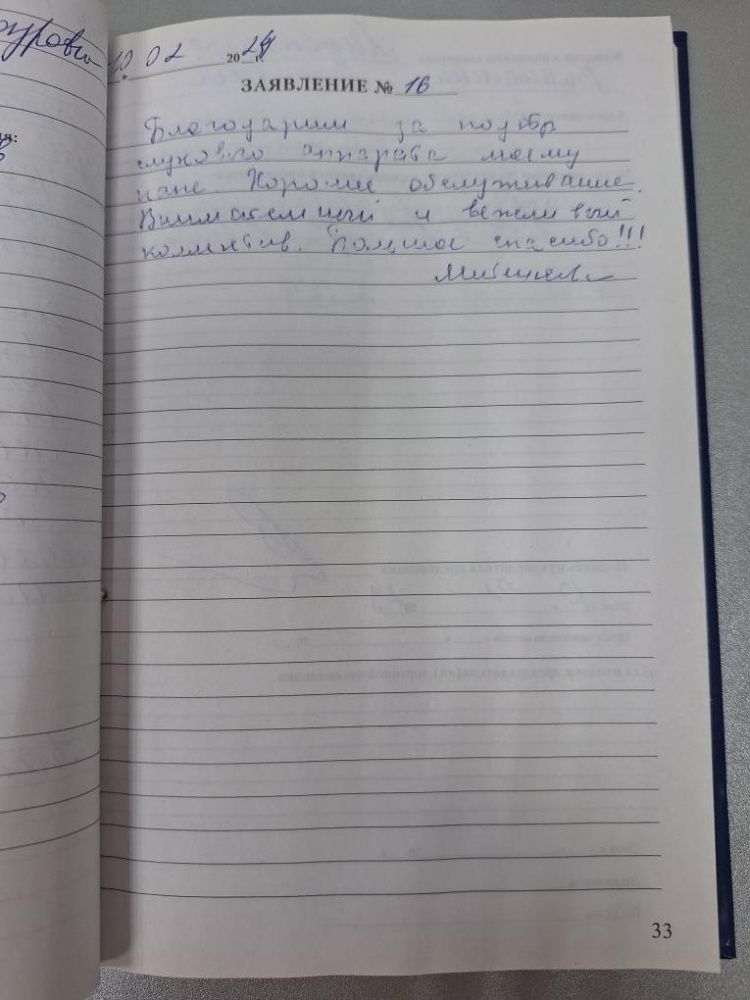 10 02 2024
ЗАЯВЛЕНИЕ № 16
Благодарим за подбор
слухового аппарата моему
папе. Хорошее обслуживание.
Внимательный и вежливый
коллектив. Большое спасибо!!!
33